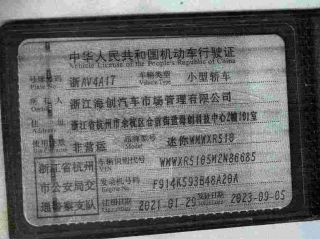 中华人民共和国机动车行驶证
Vehicle License of the People's Republic of China
号牌号码 浙AV4A17 车辆类型 小型轿车
Plate No. Vehicle Type
所有人 浙江海创汽车市场管理有限公司
住址 浙江省杭州市余杭区仓前街道海创科技中心2幢101室
使用性质 非营运 品牌型号 迷你WMWXR510
浙江省杭州 车辆识别代号 WMWXR5105M2N86685
VIN
市公安局交 发动机号码 F914K593B48A20A
Engine No.
通警察支队 注册日期 2021-01-29 发证日期 2023-09-05